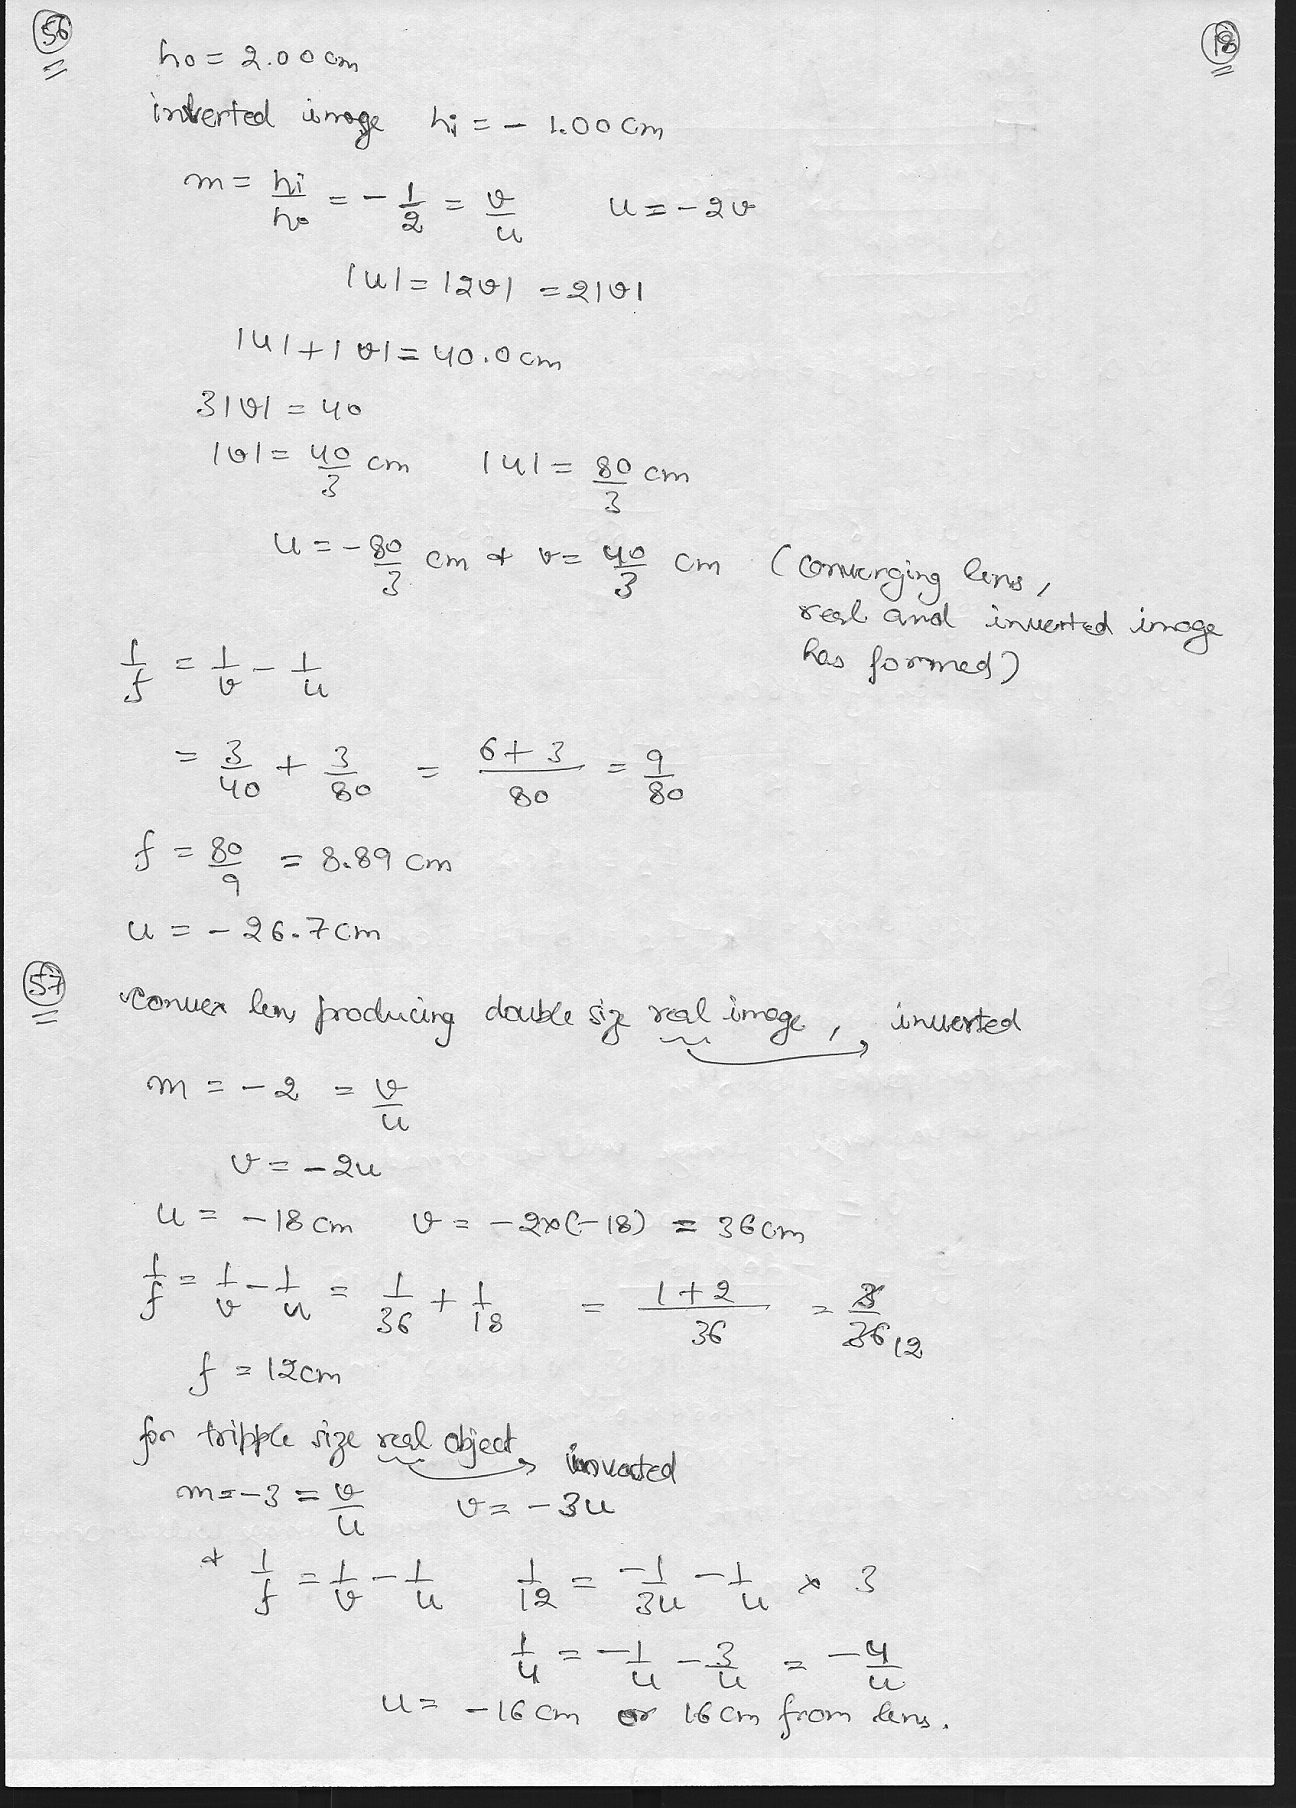 56
18
ho = 2.00 cm
inverted image hi = - 1.00 cm
m = hi/ho = - 1/2 = v/u u = -2v
|u| = |2v| = 2|v|
|u| + |v| = 40.0 cm
3|v| = 40
|v| = 40/3 cm |u| = 80/3 cm
u = - 80/3 cm & v = 40/3 cm (converging lens,
real and inverted image
has formed)
1/f = 1/v - 1/u
= 3/40 + 3/80 = 6+3/80 = 9/80
f = 80/9 = 8.89 cm
u = - 26.7 cm
57
convex lens producing double size real image, inverted
m = -2 = v/u
v = -2u
u = -18 cm v = -2x(-18) = 36 cm
1/f = 1/v - 1/u = 1/36 + 1/18 = 1+2/36 = 3/36 12
f = 12cm
for tripple size real object, inverted
m = -3 = v/u v = -3u
& 1/f = 1/v - 1/u 1/12 = -1/3u - 1/u x 3
1/4 = -1/u - 3/u = -4/u
u = -16 cm or 16 cm from lens.